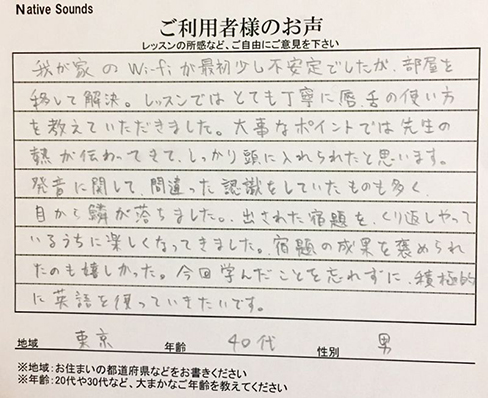 Native Sounds
ご利用者様のお声
レッスンの所感など、ご自由にご意見を下さい
我が家のWi-fiが最初少し不安定でしたが、部屋を
移して解決。レッスンではとても丁寧に唇、舌の使い方
を教えていただきました。大事なポイントでは先生の
熱が伝わってきて、しっかり頭に入れられたと思います。
発音に関して、間違った認識をしていたものも多く、
目から鱗が落ちました。出された宿題を、くり返しやって
いるうちに楽しくなってきました。宿題の成果を褒められ
たのも嬉しかった。今回学んだことを忘れずに、積極的
に英語を使っていきたいです。
地域 東京 年齢 40代 性別 男
※地域：お住まいの都道府県などをお書きください
※年齢：20代や30代など、大まかなご年齢を教えてください